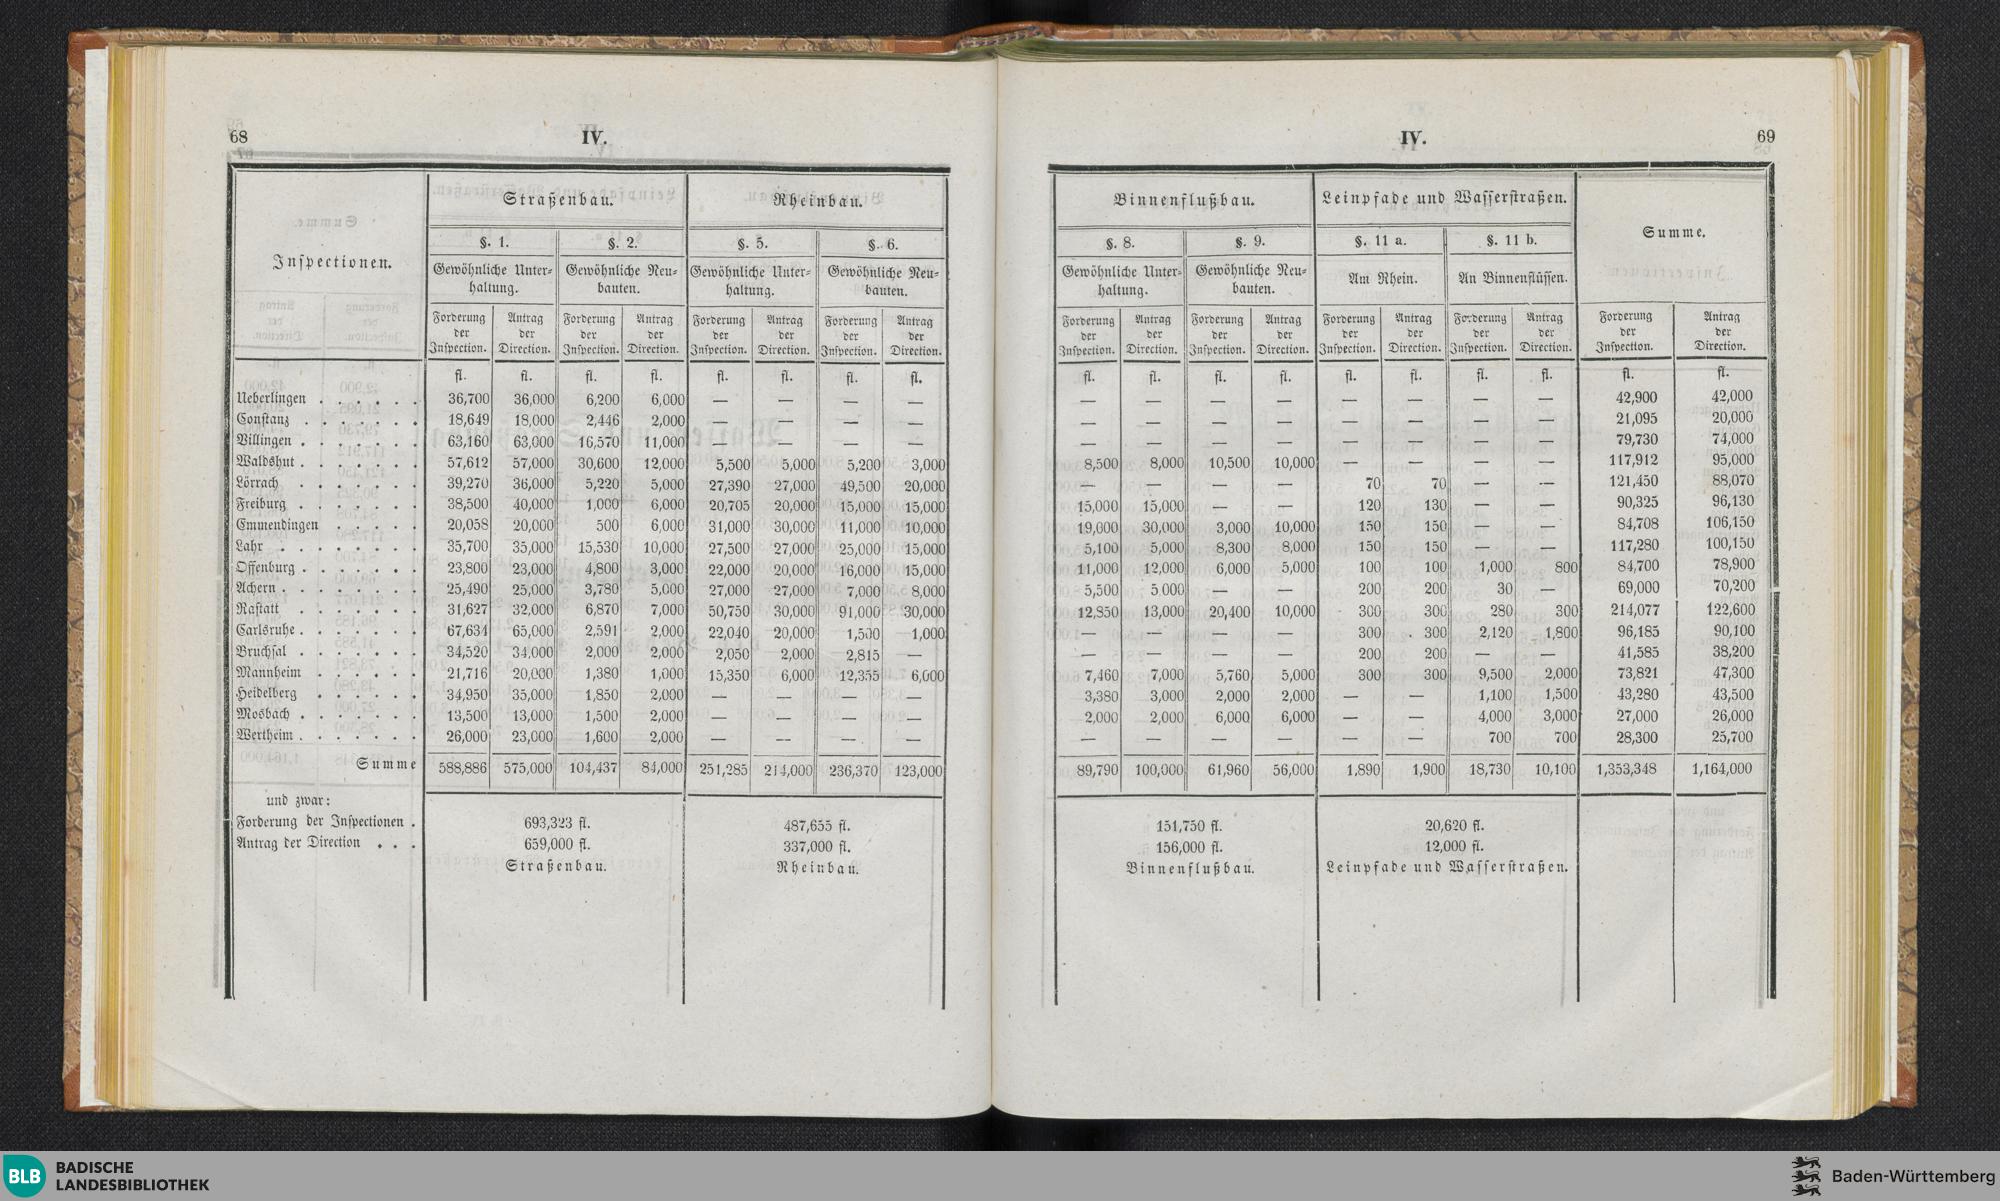 68
IV.
Inspectionen.
Straßenbau.
Rheinbau.
§. 1.
§. 2.
§. 5.
§. 6.
Gewöhnliche Unter-
haltung.
Gewöhnliche Neu-
bauten.
Gewöhnliche Unter-
haltung.
Gewöhnliche Neu-
bauten.
Forderung der Inspection. Antrag der Direction. Forderung der Inspection. Antrag der Direction. Forderung der Inspection. Antrag der Direction. Forderung der Inspection. Antrag der Direction.
fl. fl. fl. fl. fl. fl. fl. fl.
Ueberlingen . . . . . . 36,700 36,000 6,200 6,000 — — — —
Constanz . . . . . . . 18,649 18,000 2,446 2,000 — — — —
Villingen . . . . . . . 63,160 63,000 16,570 11,000 — — — —
Waldshut . . . . . . . 57,612 57,000 30,600 12,000 5,500 5,000 5,200 3,000
Lörrach . . . . . . . 39,270 36,000 5,220 5,000 27,390 27,000 49,500 20,000
Freiburg . . . . . . . 38,500 40,000 1,000 6,000 20,705 20,000 15,000 15,000
Emmendingen . . . . . 20,058 20,000 500 6,000 31,000 30,000 11,000 10,000
Lahr . . . . . . . . 35,700 35,000 15,530 10,000 27,500 27,000 25,000 15,000
Offenburg . . . . . . . 23,800 23,000 4,800 3,000 22,000 20,000 16,000 15,000
Achern . . . . . . . . 25,490 25,000 3,780 5,000 27,000 27,000 7,000 8,000
Rastatt . . . . . . . 31,627 32,000 6,870 7,000 50,750 30,000 91,000 30,000
Carlsruhe . . . . . . . 67,634 65,000 2,591 2,000 22,040 20,000 1,500 1,000
Bruchsal . . . . . . . 34,520 34,000 2,000 2,000 2,050 2,000 2,815 —
Mannheim . . . . . . 21,716 20,000 1,380 1,000 15,350 6,000 12,355 6,000
Heidelberg . . . . . . 34,950 35,000 1,850 2,000 — — — —
Mosbach . . . . . . . 13,500 13,000 1,500 2,000 — — — —
Wertheim . . . . . . . 26,000 23,000 1,600 2,000 — — — —
Summe 588,886 575,000 104,437 84,000 251,285 214,000 236,370 123,000
und zwar:
Forderung der Inspectionen . 693,323 fl. 487,655 fl.
Antrag der Direction . . . 659,000 fl. 337,000 fl.
Straßenbau. Rheinbau.
IV.
69
Binnenflußbau.
Leinpfade und Wasserstraßen.
Summe.
§. 8.
§. 9.
§. 11 a.
§. 11 b.
Gewöhnliche Unter-
haltung.
Gewöhnliche Neu-
bauten.
Am Rhein.
An Binnenflüssen.
Forderung der Inspection. Antrag der Direction. Forderung der Inspection. Antrag der Direction. Forderung der Inspection. Antrag der Direction. Forderung der Inspection. Antrag der Direction. Forderung der Inspection. Antrag der Direction.
fl. fl. fl. fl. fl. fl. fl. fl. fl. fl.
— — — — — — — — 42,900 42,000
— — — — — — — — 21,095 20,000
— — — — — — — — 79,730 74,000
8,500 8,000 10,500 10,000 — — — — 117,912 95,000
— — — — 70 70 — — 121,450 88,070
15,000 15,000 — — 120 130 — — 90,325 96,130
19,000 30,000 3,000 10,000 150 150 — — 84,708 106,150
5,100 5,000 8,300 8,000 150 150 — — 117,280 100,150
11,000 12,000 6,000 5,000 100 100 1,000 800 84,700 78,900
5,500 5,000 — — 200 200 30 — 69,000 70,200
12,850 13,000 20,400 10,000 300 300 280 300 214,077 122,600
— — — — 300 300 2,120 1,800 96,185 90,100
— — — — 200 200 — — 41,585 38,200
7,460 7,000 5,760 5,000 300 300 9,500 2,000 73,821 47,300
3,380 3,000 2,000 2,000 — — 1,100 1,500 43,280 43,500
2,000 2,000 6,000 6,000 — — 4,000 3,000 27,000 26,000
— — — — — — 700 700 28,300 25,700
89,790 100,000 61,960 56,000 1,890 1,900 18,730 10,100 1,353,348 1,164,000
151,750 fl. 20,620 fl.
156,000 fl. 12,000 fl.
Binnenflußbau. Leinpfade und Wasserstraßen.
BLB
BADISCHE
LANDESBIBLIOTHEK
Baden-Württemberg